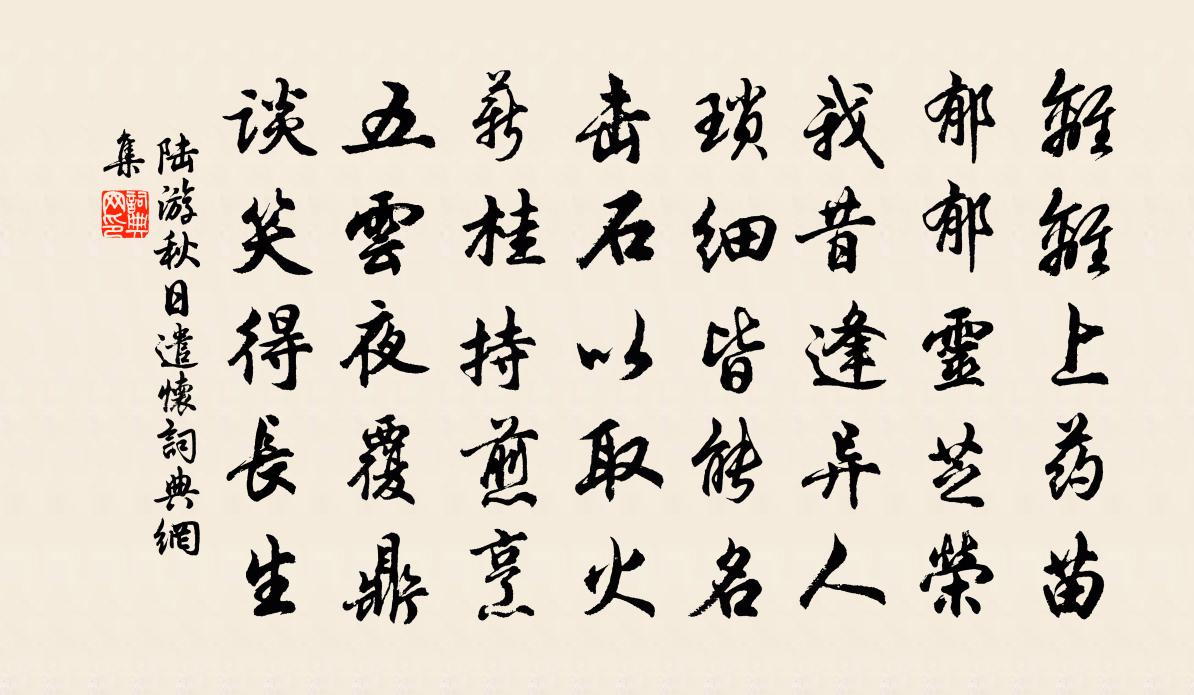 離離上药苗
郁郁靈芝榮
我昔逢异人
瑣細皆能名
击石以取火
薪桂持煎烹
五雲夜覆鼎
谈笑得長生
陆游秋日遣懷詞典網
集
詞典网印